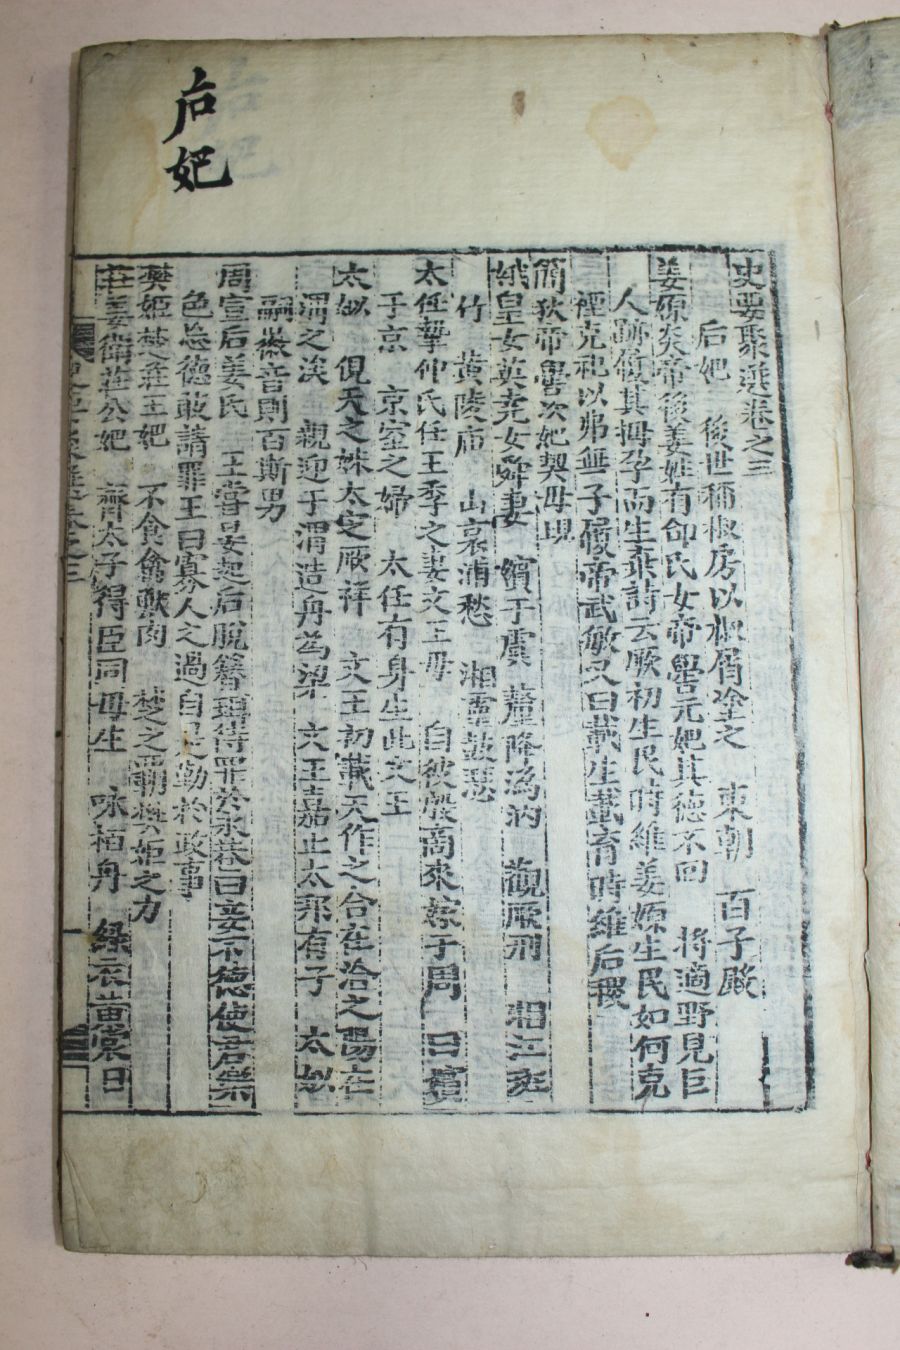 后妃
史要聚選卷之三
后妃 後世稱椒房以椒屑塗之 東朝 百子殿
姜嫄炎帝後姜姓有邰氏女帝嚳元妃其德不回 將適野見巨
人跡履其拇孕而生棄詩云厥初生民時維姜嫄生民如何克
禋克祀以弗無子履帝武敏又曰載生載育時維后稷
簡狄帝嚳次妃契母
娥皇女英堯女舜妻 嬪于虞 釐降溈汭 觀厥刑 湘江斑
竹 黃陵庙 山哀浦愁 湘靈鼓瑟
太任摯仲氏任王季之妻文王母 自彼殷商來嫁于周 曰嬪
于京 京室之婦 太任有身生此文王
太姒 俔天之妹太定厥祥 文王初載天作之合在洽之陽在
渭之涘 親迎于渭造舟為梁 文王嘉止太邦有子 太姒
嗣徽音則百斯男
周宣后姜氏 王嘗晏起后脫簪珥待罪於永巷曰妾不德使君樂
色忘德敢請罪王曰寡人之過自是勤於政事
樊姬楚莊王妃 不食禽獸肉 楚之霸樊姬之力
莊姜衛莊公妃 齊太子得臣同母生 咏栢舟 綠衣黃裳曰